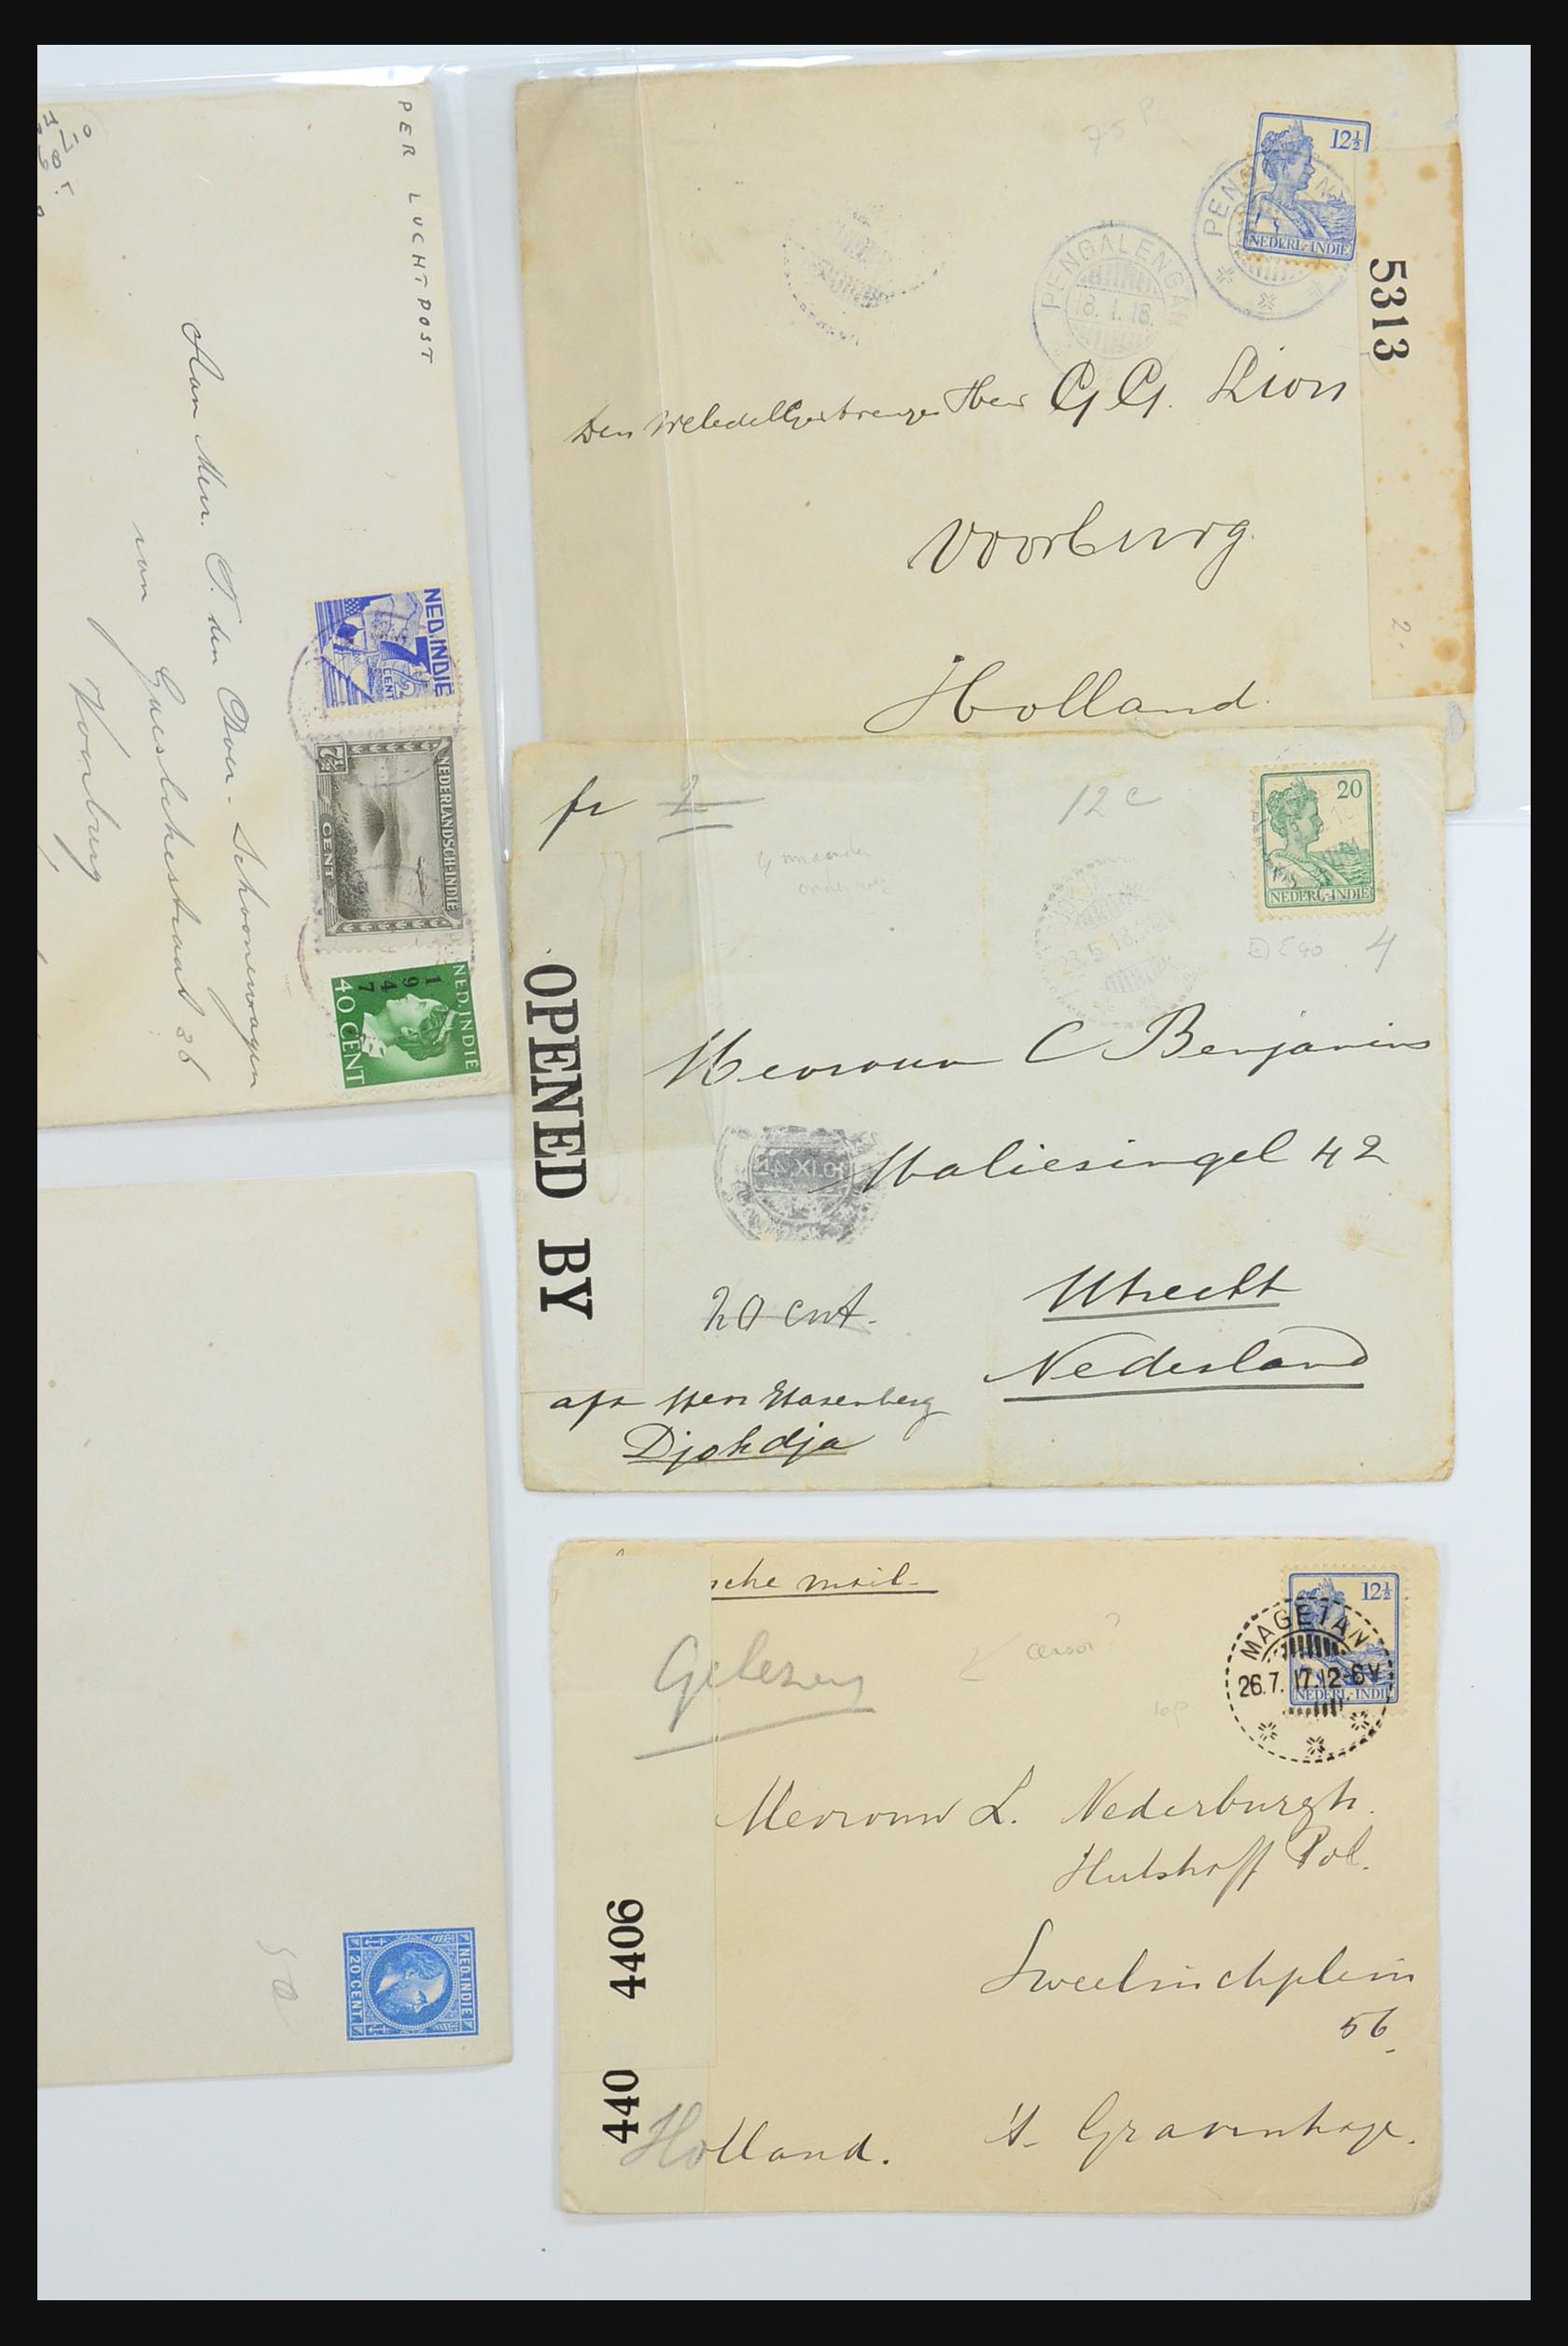 PER LUCHTPOST
Aan Mevr. T. den Boer-Schoonewagen
van Gaeslikestraat 36
Voorburg
NED.INDIE
7½
CENT
NEDERLANDSCH-INDIE
7½
CENT
NED.INDIE
1947
40 CENT
75 P
12½
NEDERL.-INDIE
PENGALENGAN
18.1.18.
5313
Den WelEdelGestrengen Heer G.G. Lion
Voorburg.
Holland.
2-
fr 2
12 c
4 maanden
onderweg
20
NEDERL.-INDIE
4
23.5.18
OPENED BY
Mevrouw C Benjamins
Maliesingel 42
20 cnt.
Utrecht
Nederland
afz Herr Hasenberg
Djokdja
sche mail-
Gelezen
censor?
12½
NEDERL.-INDIE
MAGETAN
26.7.17.12-6V
Mevrouw L. Nederburgh.
Hulshoff Pol.
Sweelinckplein
56.
4406
440
's Gravenhage.
Holland.
50
NED.INDIE
20 CENT